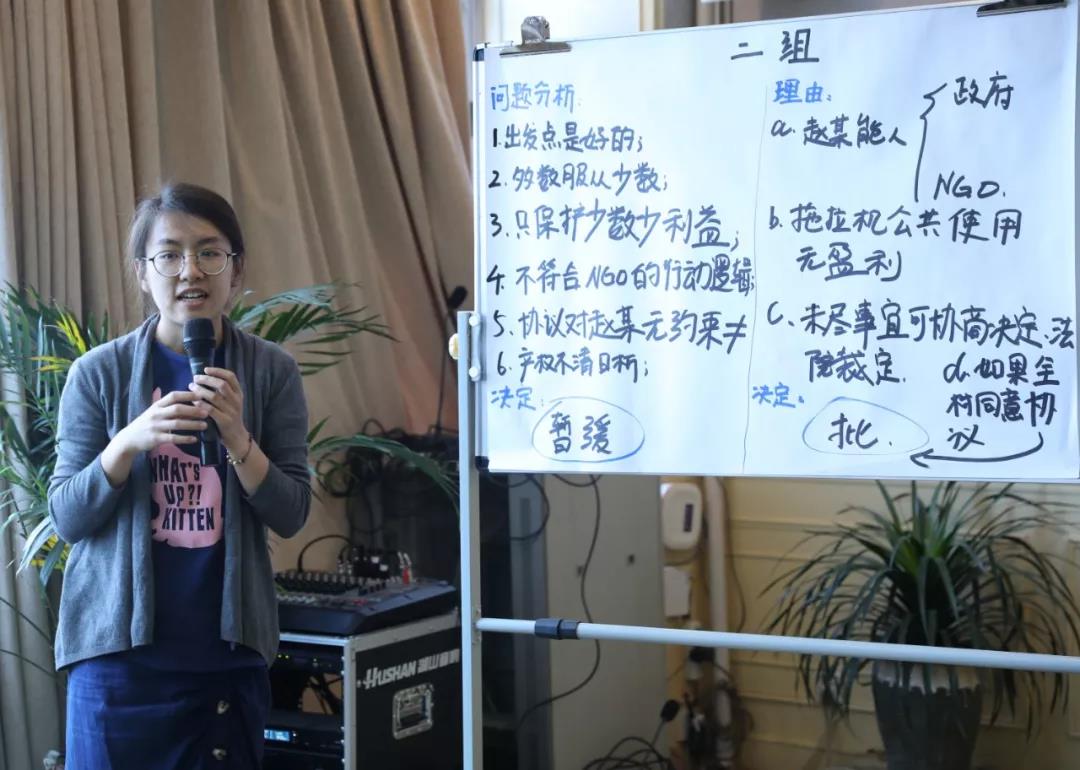 二组
问题分析:
1.出发点是好的;
2.多数服从少数;
3.只保护少数少利益;
4.不符合NGO的行动逻辑;
5.协议对赵某无约束≠
6.产权不清日析;
决定:
暂缓
理由:
a.赵某能人
政府
NGO.
b.拖拉机公共使用
无盈利
c.未尽事宜可协商决定、法
院裁定.
d.如果全
村同意协
议
决定。
批.
WHAT'S
UP?!
KITTEN
HUSHAN